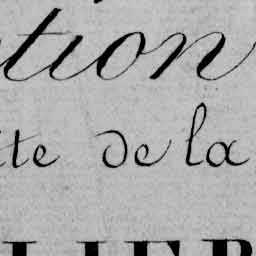 tion
te de la
LIER